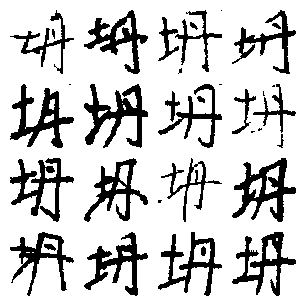 坍坍坍坍
坍坍坍坍
坍坍坍坍
坍坍坍坍